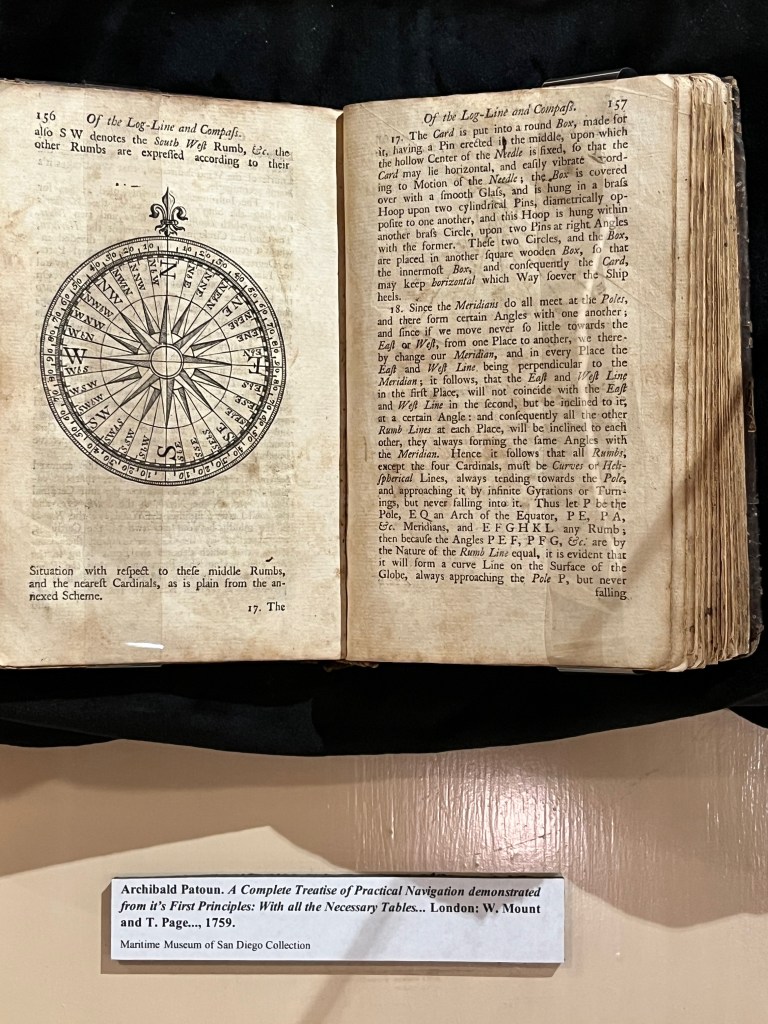 156
Of the Log-Line and Compaſs.
alſo S W denotes the South Weſt Rumb, &c. the
other Rumbs are expreſſed according to their
N
NbE
NNE
NEbN
NE
NEbE
ENE
EbN
E
EbS
ESE
SEbE
SE
SEbS
SSE
SbE
S
SbW
SSW
SWbS
SW
SWbW
WSW
WbS
W
WbN
WNW
NWbW
NW
NWbN
NNW
NbW
Situation with reſpect to theſe middle Rumbs,
and the neareſt Cardinals, as is plain from the an-
nexed Scheme.
17. The
Of the Log-Line and Compaſs. 157
17. The Card is put into a round Box, made for
it, having a Pin erected in the middle, upon which
the hollow Center of the Needle is fixed, ſo that the
Card may lie horizontal, and eaſily vibrate accord-
ing to Motion of the Needle; the Box is covered
over with a ſmooth Glaſs, and is hung in a braſs
Hoop upon two cylindrical Pins, diametrically op-
poſite to one another, and this Hoop is hung within
another braſs Circle, upon two Pins at right Angles
with the former. Theſe two Circles, and the Box,
are placed in another ſquare wooden Box, ſo that
the innermoſt Box, and conſequently the Card,
may keep horizontal which Way ſoever the Ship
heels.
18. Since the Meridians do all meet at the Poles,
and there form certain Angles with one another;
and ſince if we move never ſo little towards the
Eaſt or Weſt, from one Place to another, we there-
by change our Meridian, and in every Place the
Eaſt and Weſt Line being perpendicular to the
Meridian; it follows, that the Eaſt and Weſt Line
in the firſt Place, will not coincide with the Eaſt
and Weſt Line in the ſecond, but be inclined to it,
at a certain Angle: and conſequently all the other
Rumb Lines at each Place, will be inclined to each
other, they always forming the ſame Angles with
the Meridian. Hence it follows that all Rumbs,
except the four Cardinals, muſt be Curves or Heli-
ſpherical Lines, always tending towards the Pole,
and approaching it by infinite Gyrations or Turn-
ings, but never falling into it. Thus let P be the
Pole, E Q an Arch of the Equator, P E, P A,
&c. Meridians, and E F G H K L any Rumb;
then becauſe the Angles P E F, P F G, &c. are by
the Nature of the Rumb Line equal, it is evident that
it will form a curve Line on the Surface of the
Globe, always approaching the Pole P, but never
falling
Archibald Patoun. A Complete Treatise of Practical Navigation demonstrated
from it's First Principles: With all the Necessary Tables... London: W. Mount
and T. Page..., 1759.
Maritime Museum of San Diego Collection